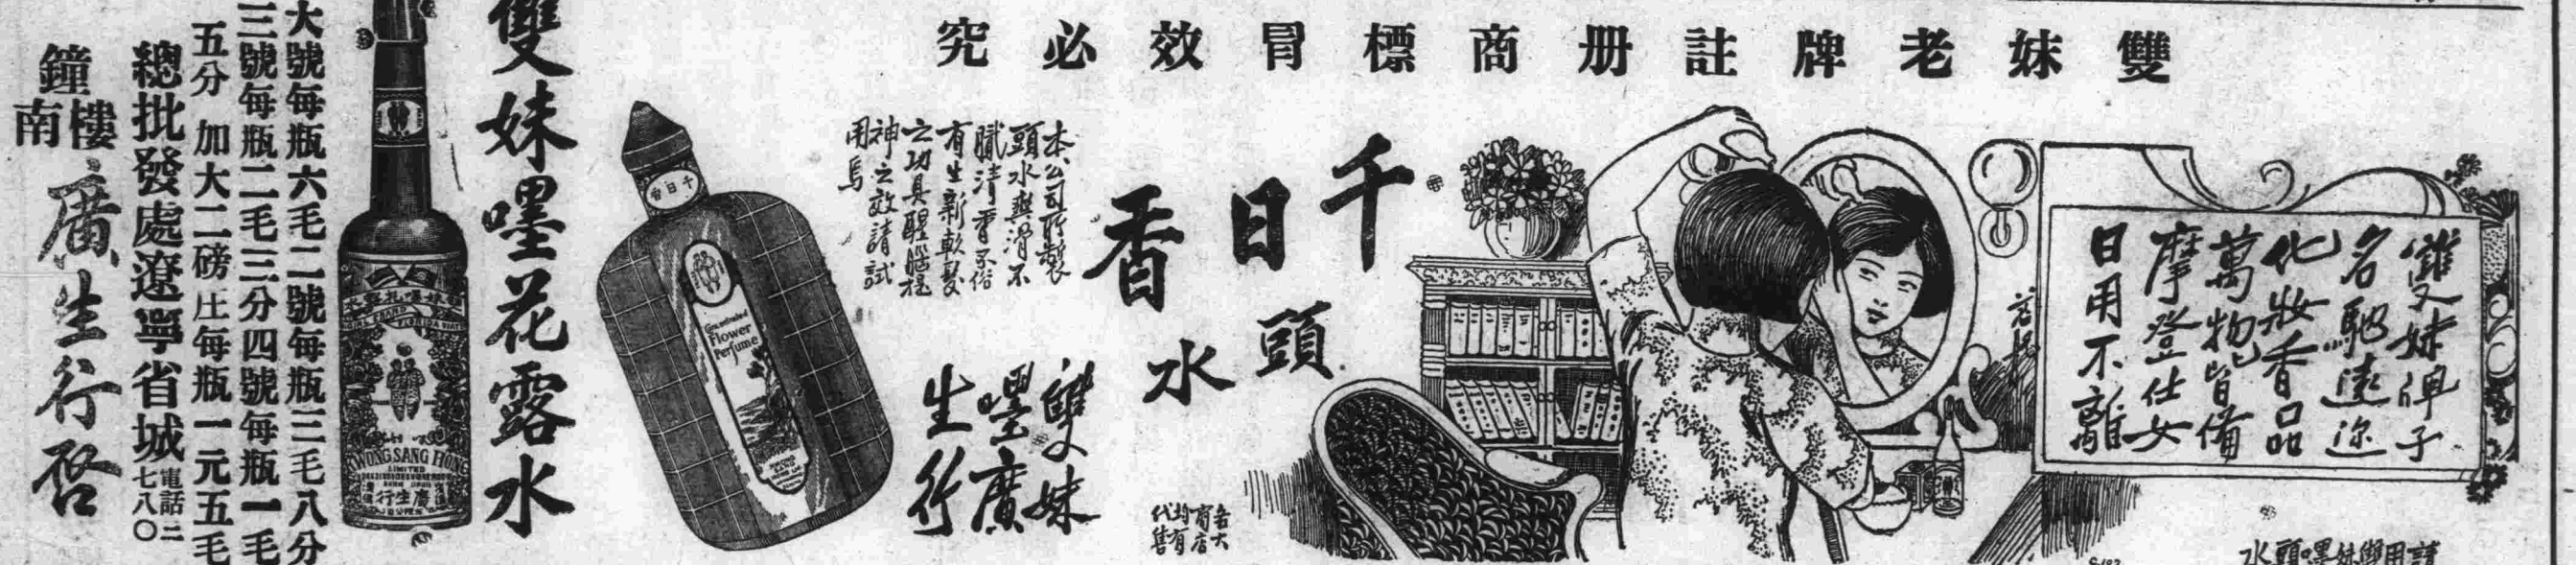 雙妹老牌註册商標冒效必究
雙妹㗎子
名馳遠迩
化妝香品
萬物皆備
摩登仕女
日用不離
千日香
頭水
本公司所製
頭水與滑不
膩清香不俗
有生新軟髮
之功具醒腦提
神之效請試
用焉
雙妹
嚜廣
生行
各大
商店
均有
代售
請用雙妹嚜頭水
千日香
Concentrated
Flower
Perfume
雙妹嚜花露水
FLORIDA WATER
KWONG SANG HONG
LIMITED
廣生行
大號每瓶六毛二號每瓶三毛八分
三號每瓶二毛三分四號每瓶一毛
五分 加大二磅庄每瓶一元五毛
總批發處遼寧省城電話二七八〇
鐘樓南廣生行啓